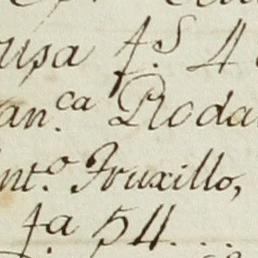 usa f.s 4
an.ca Roda
nt.o Truxillo,
f.a 54...